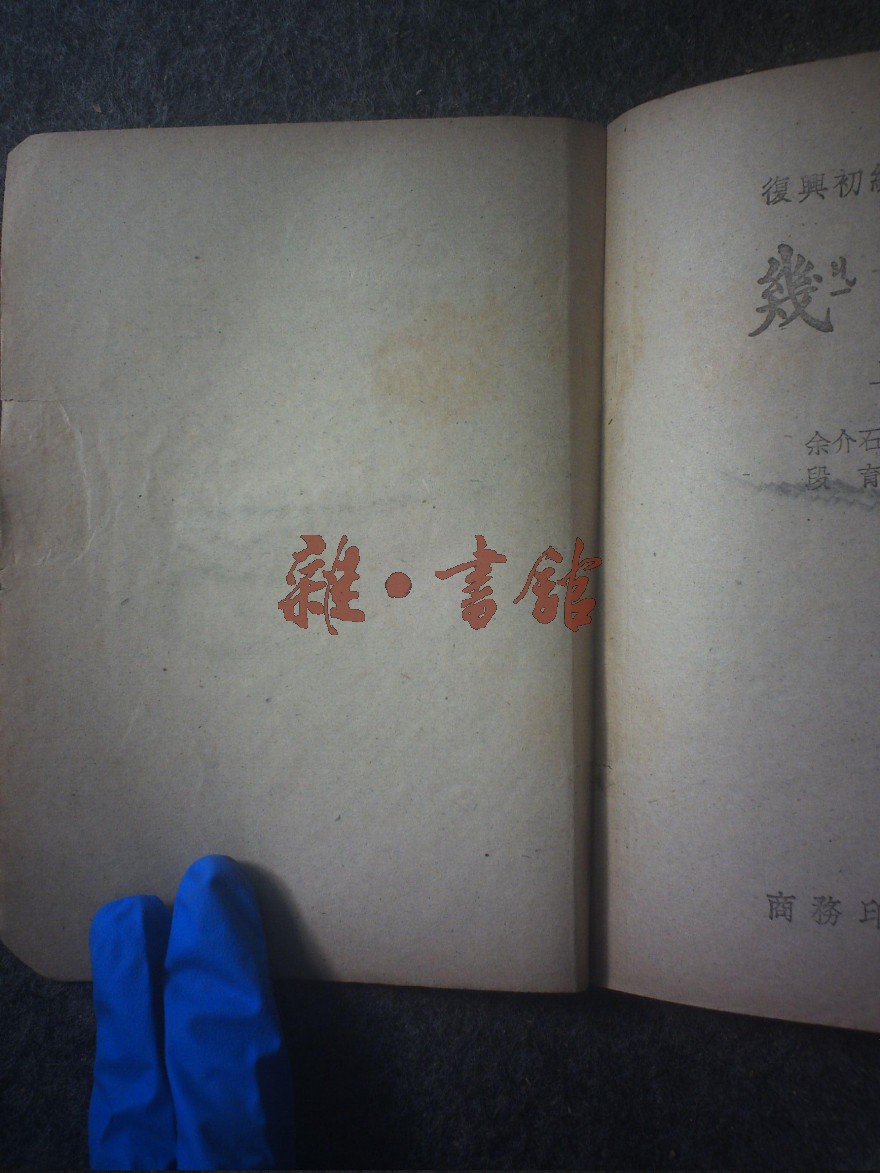 復興初級
幾
余介石
段育
商務印
雜·書館